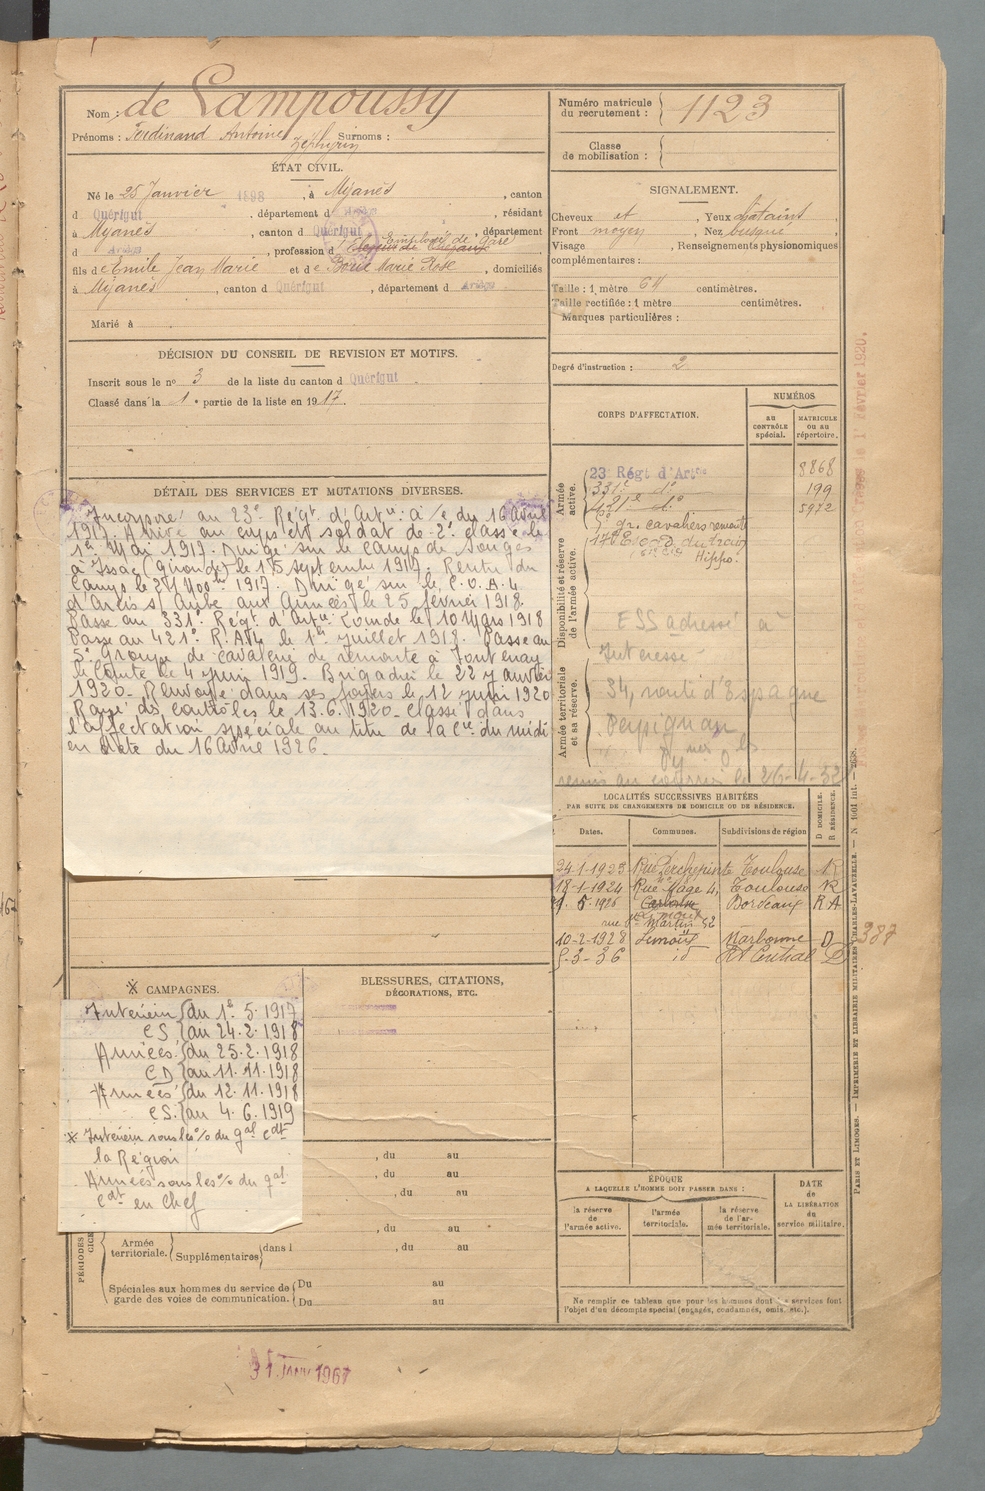 Nom : de Lampoussy
Prénoms : Ferdinand Antoine Zéphyrin Surnoms :
ÉTAT CIVIL.
Né le 25 Janvier 1898, à Mijanès, canton
d Quérigut, département d Ariège, résidant
à Mijanès, canton d Quérigut, département
d Ariège, profession d Employé de gare
fils de Emile Jean Marie et de Marie Rose, domiciliés
à Mijanès, canton d Quérigut, département d Ariège
Marié à
DÉCISION DU CONSEIL DE REVISION ET MOTIFS.
Inscrit sous le no 3 de la liste du canton d Quérigut.
Classé dans la 1e partie de la liste en 1917.
DÉTAIL DES SERVICES ET MUTATIONS DIVERSES.
Incorporé au 23e Régt d'Artie à/c du 16 Avril
1917. Arrivé au corps est soldat de 2e classe le
1er Mai 1917. Dirigé sur le camp de Souges
à Issac (Gironde) le 15 septembre 1917. Rentré du
Camp le 1917. Dirigé sur le C.O.A.4
d'Arcis s/ Aube aux Armées le 25 février 1918.
Passe au 331e Régt d'Artie Lourde le 10 Mars 1918
Passe au 421e R.A.L. le 1er Juillet 1918. Passe au
5e groupe de cavalerie de remonte à Fontenay
le Comte le 4 Juin 1919. Brigadier le 22 Janvier
1920. Renvoyé dans ses foyers le 12 Juin 1920
Rayé des contrôles le 13.6.1920. Classé dans
l'affectation spéciale au titre de la Cie du Midi
en date du 16 Avril 1926.
CAMPAGNES.
Intérieur du 1er.5.1917
CS au 24.2.1918
Armées du 25.2.1918
CD au 11.11.1918
Armées du 12.11.1918
CS. au 4.6.1919
Intérieur sous les % du gal cdt
la Région
Armées sous les % du gal
Cdt en Chef
BLESSURES, CITATIONS,
DÉCORATIONS, ETC.
, du au
, du au
, du au
, du au
PÉRIODES
Armée territoriale. Supplémentaires dans l , du au
Spéciales aux hommes du service de Du au
garde des voies de communication. Du au
31 JANV 1967
Numéro matricule du recrutement : 1123
Classe de mobilisation :
SIGNALEMENT.
Cheveux et, Yeux chatains,
Front moyen, Nez busqué,
Visage, Renseignements physionomiques
complémentaires :
Taille : 1 mètre 64 centimètres.
Taille rectifiée : 1 mètre centimètres.
Marques particulières :
Degré d'instruction : 2
CORPS D'AFFECTATION.
NUMÉROS
AU CONTRÔLE spécial.
MATRICULE OU AU répertoire.
Armée active.
23 Régt d'Artie 8868
331e do 199
421e do 5972
5e gr. cavaliers remonte
Hippo.
Disponibilité et réserve de l'armée active.
ESS adressé à
Intéressé
Armée territoriale et sa réserve.
34, route d'Espagne
Perpignan
remis au courrier le 26-4-32
LOCALITÉS SUCCESSIVES HABITÉES
PAR SUITE DE CHANGEMENTS DE DOMICILE OU DE RÉSIDENCE.
Dates. Communes. Subdivisions de région D DOMICILE. R RÉSIDENCE.
24-1-1923 Rue Perchepinte Toulouse R
18-1-1924 Rue Mage 4, Toulouse R
5-1926 Bordeaux RA
rue Martin 52
10-2-1928 Limoux Narbonne D
5-3-36 id Rt Central D
387
ÉPOQUE
A LAQUELLE L'HOMME DOIT PASSER DANS :
la réserve de l'armée active.
l'armée territoriale.
la réserve de l'armée territoriale.
DATE de LA LIBÉRATION du service militaire.
Ne remplir ce tableau que pour les hommes dont les services font
l'objet d'un décompte spécial (engagés, condamnés, omis, etc.).
PARIS ET LIMOGES. — IMPRIMERIE ET LIBRAIRIE MILITAIRES CHARLES-LAVAUZELLE. —